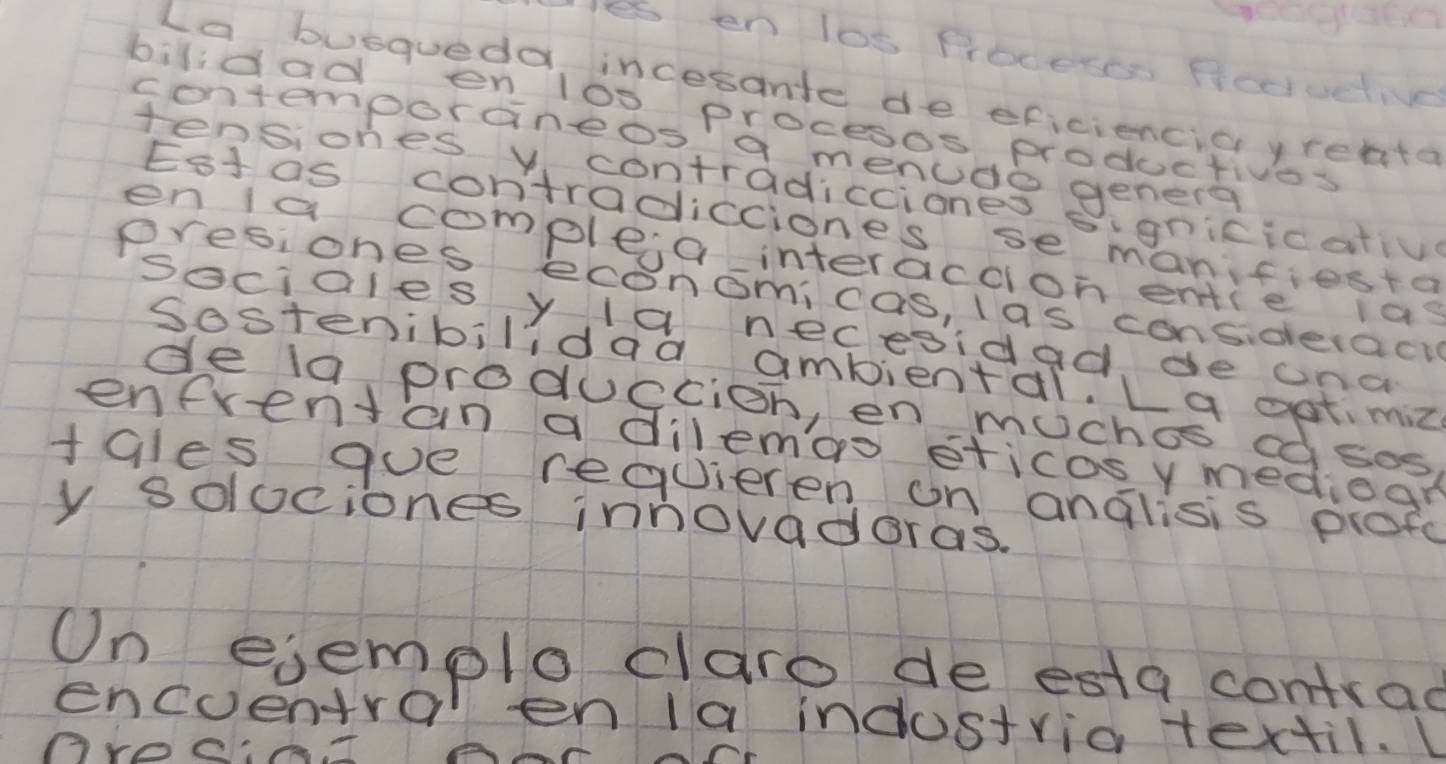 en los Procesos Productivo
La busqueda incesante de eficiencia y renta
bilidad en los procesos productivos
contemporáneos a menudo genera
tensiones y contradicciones signicicativa
Estas contradicciones se manifiesta
en la compleja interacción entre las
presiones económicas, las consideracio
sociales y la necesidad de una
sostenibilidad ambiental. La optimiz
de la producción, en muchos casos,
enfrentan a dilemas éticos y medioam
tales que requieren un análisis profu
y soluciones innovadoras.
Un ejemplo claro de esta contrad
encuentra en la industria textil. L
presión por